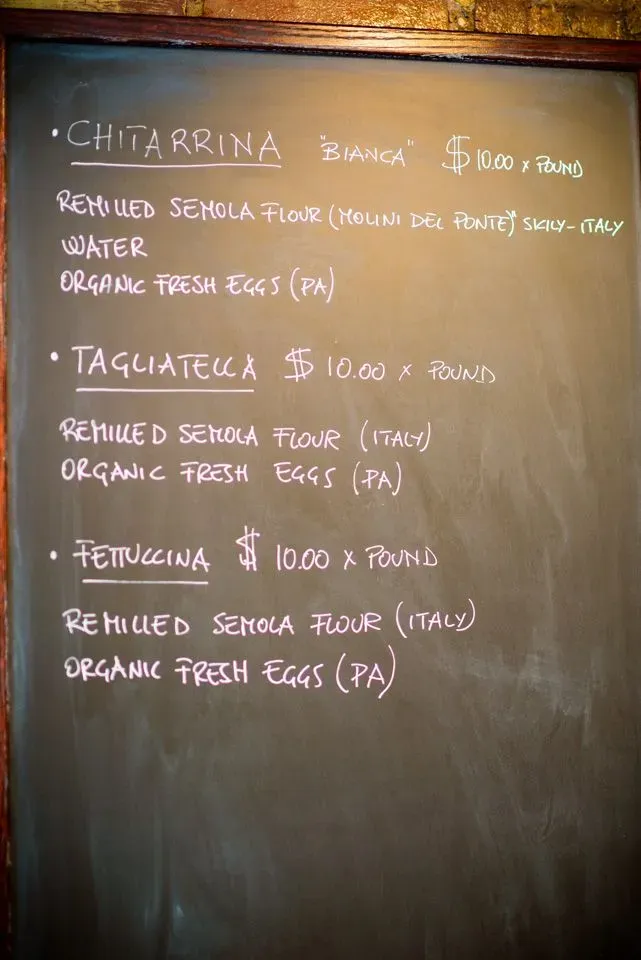 • CHITARRINA "BIANCA" $10.00 x POUND
REMILLED SEMOLA FLOUR (MOLINI DEL PONTE)" SICILY-ITALY
WATER
ORGANIC FRESH EGGS (PA)
• TAGLIATELLA $ 10.00 x POUND
REMILLED SEMOLA FLOUR (ITALY)
ORGANIC FRESH EGGS (PA)
• FETTUCCINA $ 10.00 x POUND
REMILLED SEMOLA FLOUR (ITALY)
ORGANIC FRESH EGGS (PA)